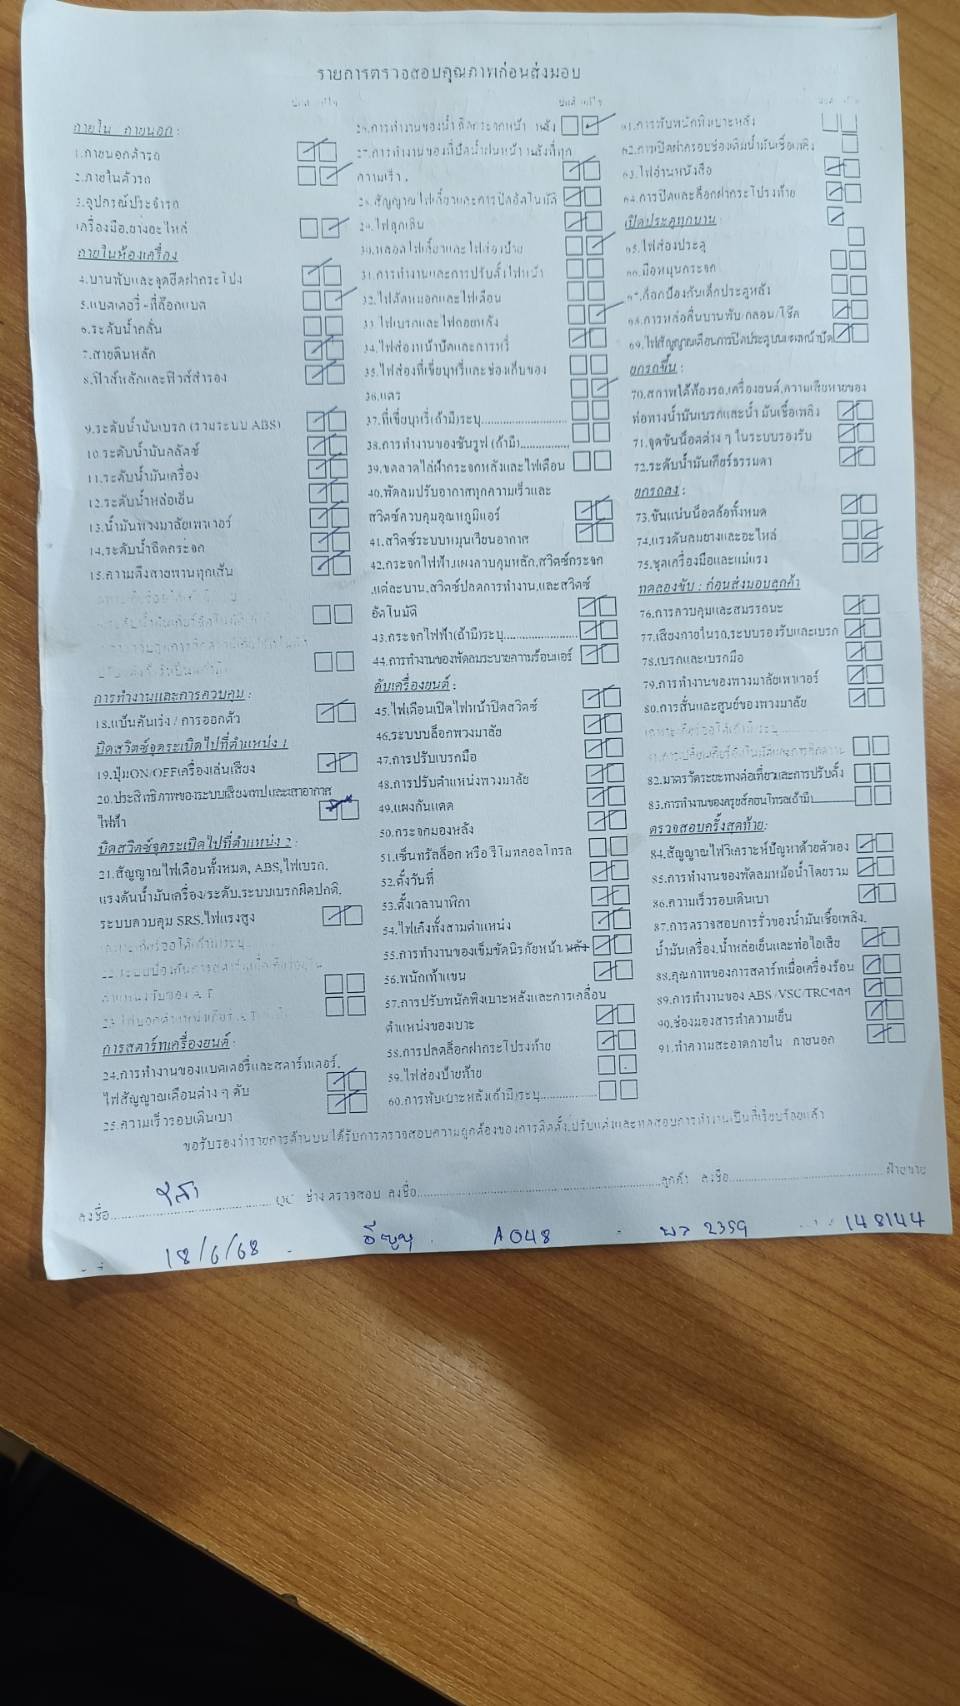 รายการตรวจสอบคุณภาพก่อนส่งมอบ
ภายใน ภายนอก :
1.ภายนอกตัวรถ
2.ภายในตัวรถ
3.อุปกรณ์ประจำรถ
เครื่องมือ,ยางอะไหล่
ภายในห้องเครื่อง
4.บานพับและจุดยึดฝากระโปง
5.แบตเตอรี่-ที่ล็อกแบต
6.ระดับน้ำกลั่น
7.สายดินหลัก
8.ฟิวส์หลักและฟิวส์สำรอง
9.ระดับน้ำมันเบรก (รวมระบบ ABS)
10.ระดับน้ำมันคลัตช์
11.ระดับน้ำมันเครื่อง
12.ระดับน้ำหล่อเย็น
13.น้ำมันพวงมาลัยเพาเวอร์
14.ระดับน้ำฉีดกระจก
15.ความตึงสายพานทุกเส้น
การทำงานและการควบคุม :
18.แป้นคันเร่ง / การออกตัว
บิดสวิตซ์จุดระเบิดไปที่ตำแหน่ง 1
19.ปุ่มON/OFFเครื่องเล่นเสียง
20.ประสิทธิภาพของระบบเสียงเทปและเสาอากาศ
ไฟฟ้า
บิดสวิตซ์จุดระเบิดไปที่ตำแหน่ง 2 :
21.สัญญาณไฟเตือนทั้งหมด, ABS,ไฟเบรก.
แรงดันน้ำมันเครื่อง/ระดับ.ระบบเบรกผิดปกติ.
ระบบควบคุม SRS.ไฟแรงสูง
การสตาร์ทเครื่องยนต์:
24.การทำงานของแบตเตอรี่และสตาร์ทเตอร์.
ไฟสัญญาณเตือนต่าง ๆ ดับ
25.ความเร็วรอบเดินเบา
26.การทำงานของน้ำฉีดกระจกหน้า หลัง
27.การทำงานของที่ปัดน้ำฝนหน้า/หลังที่ทุก
ความเร็ว.
28.สัญญาณไฟเลี้ยวและการปิดอัตโนมัติ
29.ไฟฉุกเฉิน
30.หลอดไฟเลี้ยวและไฟส่องป้าย
31.การทำงานและการปรับตั้งไฟหน้า
32.ไฟตัดหมอกและไฟเตือน
33.ไฟเบรกและไฟถอยหลัง
34.ไฟส่องหน้าปัดและการหรี่
35.ไฟส่องที่เขี่ยบุหรี่และช่องเก็บของ
36.แตร
37.ที่เขี่ยบุหรี่ (ถ้ามี)ระบุ
38.การทำงานของซันรูฟ (ถ้ามี)
39.ขดลวดไล่ฝ้ากระจกหลังและไฟเตือน
40.พัดลมปรับอากาศทุกความเร็วและ
สวิตช์ควบคุมอุณหภูมิแอร์
41.สวิตช์ระบบหมุนเวียนอากาศ
42.กระจกไฟฟ้า,แผงควบคุมหลัก,สวิตซ์กระจก
,แต่ละบาน.สวิตช์ปลดการทำงาน,และสวิตซ์
อัตโนมัติ
43.กระจกไฟฟ้า(ถ้ามี)ระบุ
44.การทำงานของพัดลมระบายความร้อนแอร์
ดับเครื่องยนต์ :
45.ไฟเตือนเปิดไฟหน้าปิดสวิตซ์
46.ระบบบล็อกพวงมาลัย
47.การปรับเบรกมือ
48.การปรับตำแหน่งพวงมาลัย
49.แผงกันแดด
50.กระจกมองหลัง
51.เซ็นทรัลล็อก หรือ รีโมทคอลโทรล
52.ตั้งวันที่
53.ตั้งเวลานาฬิกา
54.ไฟเก๋งทั้งสามตำแหน่ง
55.การทำงานของเข็มขัดนิรภัยหน้า/หลัง
56.พนักเท้าแขน
57.การปรับพนักพิงเบาะหลังและการเคลื่อน
ตำแหน่งของเบาะ
58.การปลดล็อกฝากระโปรงท้าย
59.ไฟส่องป้ายท้าย
60.การพับเบาะหลัง(ถ้ามี)ระบุ
61.การพับพนักพิงเบาะหลัง
62.การเปิดฝาครอบช่องเติมน้ำมันเชื้อเพลิง
63.ไฟอ่านหนังสือ
64.การปิดและล็อกฝากระโปรงท้าย
เปิดประตูทุกบาน :
65.ไฟส่องประตู
66.มือหมุนกระจก
67.ล็อกป้องกันเด็กประตูหลัง
68.การหล่อลื่นบานพับ/กลอน/โช๊ค
69.ไฟสัญญาณเตือนการปิดประตูบนแผงหน้าปัด
ยกรถขึ้น :
70.สภาพใต้ท้องรถ,เครื่องยนต์,ความเสียหายของ
ท่อทางน้ำมันเบรกและน้ำมันเชื้อเพลิง
71.จุดขันน็อตต่าง ๆ ในระบบรองรับ
72.ระดับน้ำมันเกียร์ธรรมดา
ยกรถลง :
73.ขันแน่นน็อตล้อทั้งหมด
74.แรงดันลมยางและอะไหล่
75.ชุดเครื่องมือและแม่แรง
ทดลองขับ : ก่อนส่งมอบลูกค้า
76.การควบคุมและสมรรถนะ
77.เสียงภายในรถ,ระบบรองรับและเบรก
78.เบรกและเบรกมือ
79.การทำงานของพวงมาลัยเพาเวอร์
80.การสั่นและศูนย์ของพวงมาลัย
82.มาตรวัดระยะทางต่อเที่ยวและการปรับตั้ง
83.การทำงานของครุยส์คอนโทรล(ถ้ามี)
ตรวจสอบครั้งสุดท้าย:
84.สัญญาณไฟวิเคราะห์ปัญหาด้วยตัวเอง
85.การทำงานของพัดลมหม้อน้ำโดยรวม
86.ความเร็วรอบเดินเบา
87.การตรวจสอบการรั่วของน้ำมันเชื้อเพลิง.
น้ำมันเครื่อง.น้ำหล่อเย็นและท่อไอเสีย
88.คุณภาพของการสตาร์ทเมื่อเครื่องร้อน
89.การทำงานของ ABS /VSC/TRCฯลฯ
90.ช่องมองสารทำความเย็น
91.ทำความสะอาดภายใน ภายนอก
ขอรับรองว่ารายการด้านบนได้รับการตรวจสอบความถูกต้องของการติดตั้ง,ปรับแต่งและทดสอบการทำงานเป็นที่เรียบร้อยแล้ว
ลงชื่อ QC ช่างตรวจสอบ ลงชื่อ ลูกค้า ลงชื่อ ฝ่ายขาย
18/6/68 อีซูซุ A048 2359 148144